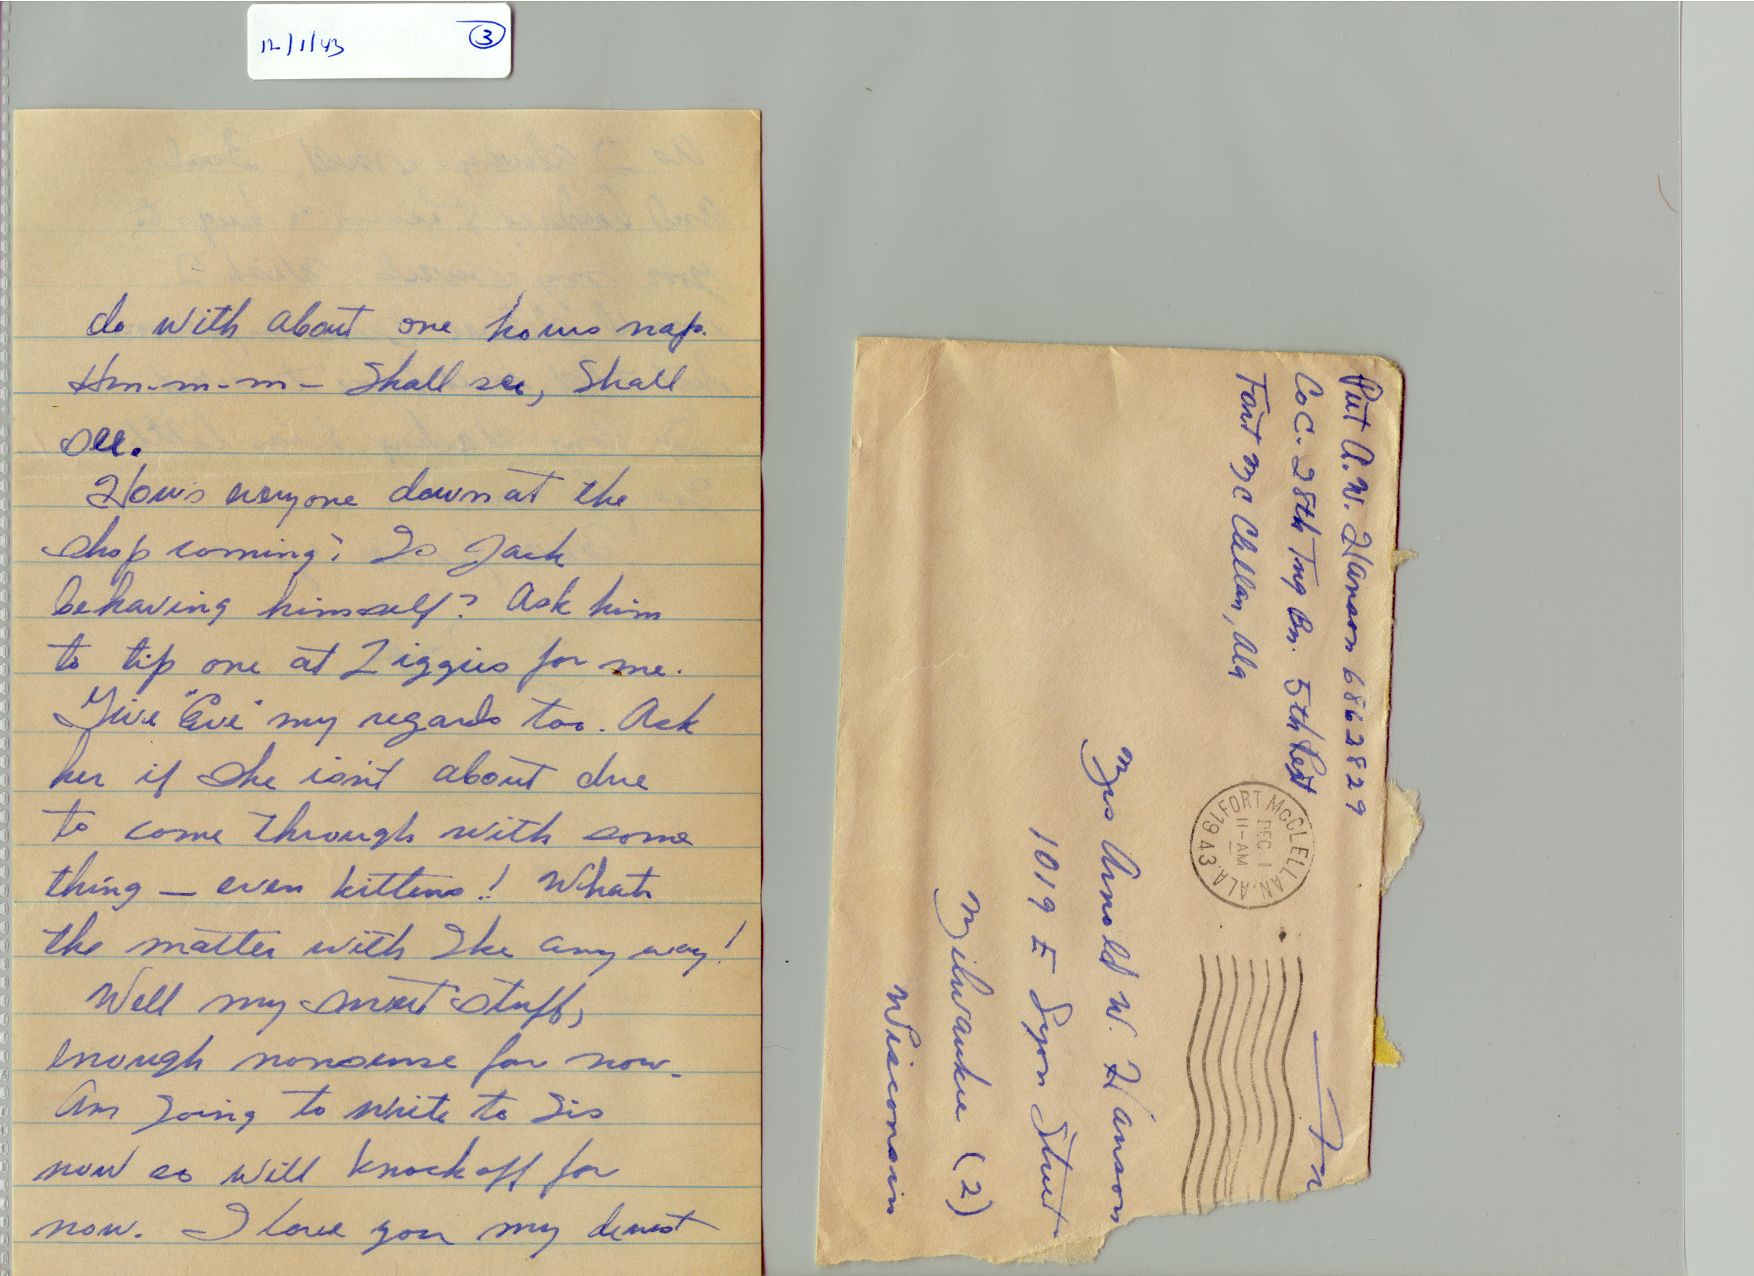 12/1/43 3
do with about one hours nap.
Hm-m-m- Shall see, Shall
see.
How's everyone down at the
shop coming? Is Jack
behaving himself? Ask him
to tip one at Ziggies for me.
Give "Eve" my regards too. Ask
her if she isn't about due
to come through with some
thing — even kittens! Whats
the matter with Ike any way!
Well my sweet stuff,
enough nonsense for now.
Am going to write to Sis
now so will knock off for
now. I love you my dearest
Pvt A.W. Hanson 6862829
Co C. 28th Tng Bn. 5th
Fort Mc Clellan, Ala
FORT McCLELLAN, ALA.
DEC 1
11-AM
1943
Mrs Arnold W. Hanson
1019 E Lyon Street
Milwaukee (2)
Wisconsin